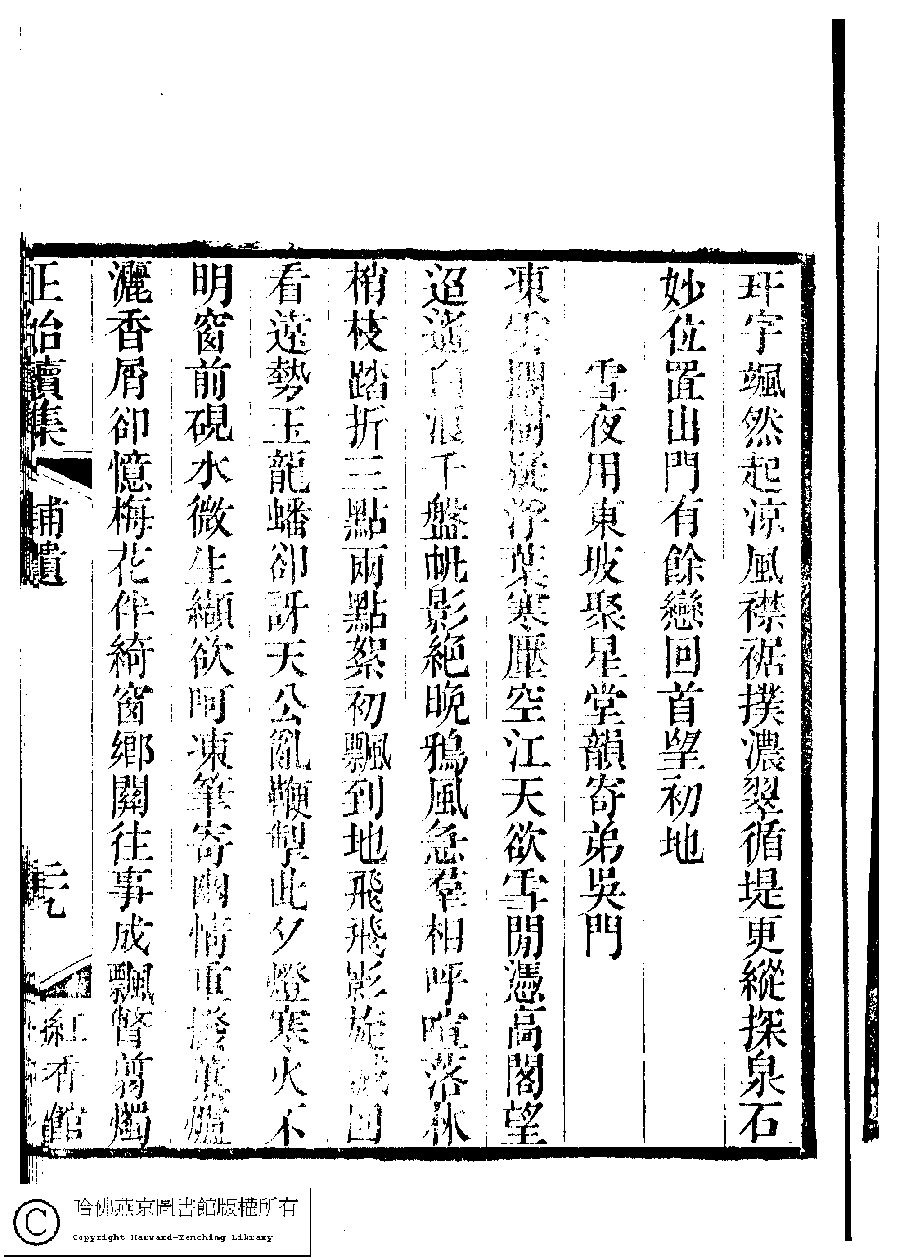 玕字颯然起涼風襟裾撲濃翠循堤更縱探泉石
妙位置山門有餘戀回首望初地
雪夜用東坡聚星堂韻寄弟吳門
凍雲罨樹凝浮葉寒壓空江天欲雪閒憑高閣望
迢遙白浪千盤帆影絕晚鴉風急羣相呼喧落林
梢枝踏折三點兩點絮初飄到地飛飛影旋滅回
看遠勢玉龍蟠卻訝天公亂鞭掣此夕燈寒火不
明窗前硯水微生纈欲呵凍筆寄幽情重撥薰爐
灑香屑卻憶梅花伴綺窗鄉關往事成飄瞥翦燭
正始續集
補遺
三九
紅香館
哈佛燕京圖書館版權所有
Copyright Harvard-Yenching Library